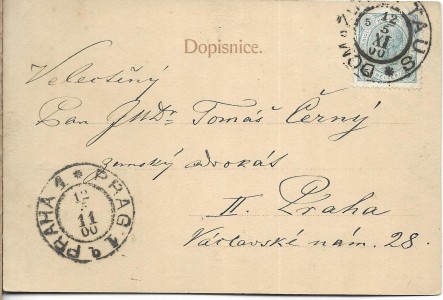 Dopisnice.
DOMAŽLICE * TAUS *
12
5
XI
00
5
Velectěný
Pan JUDr Tomáš Černý
zemský advokát
II. Praha
Václavské nám. 28.
PRAHA 1 * PRAG 1
12
11
00